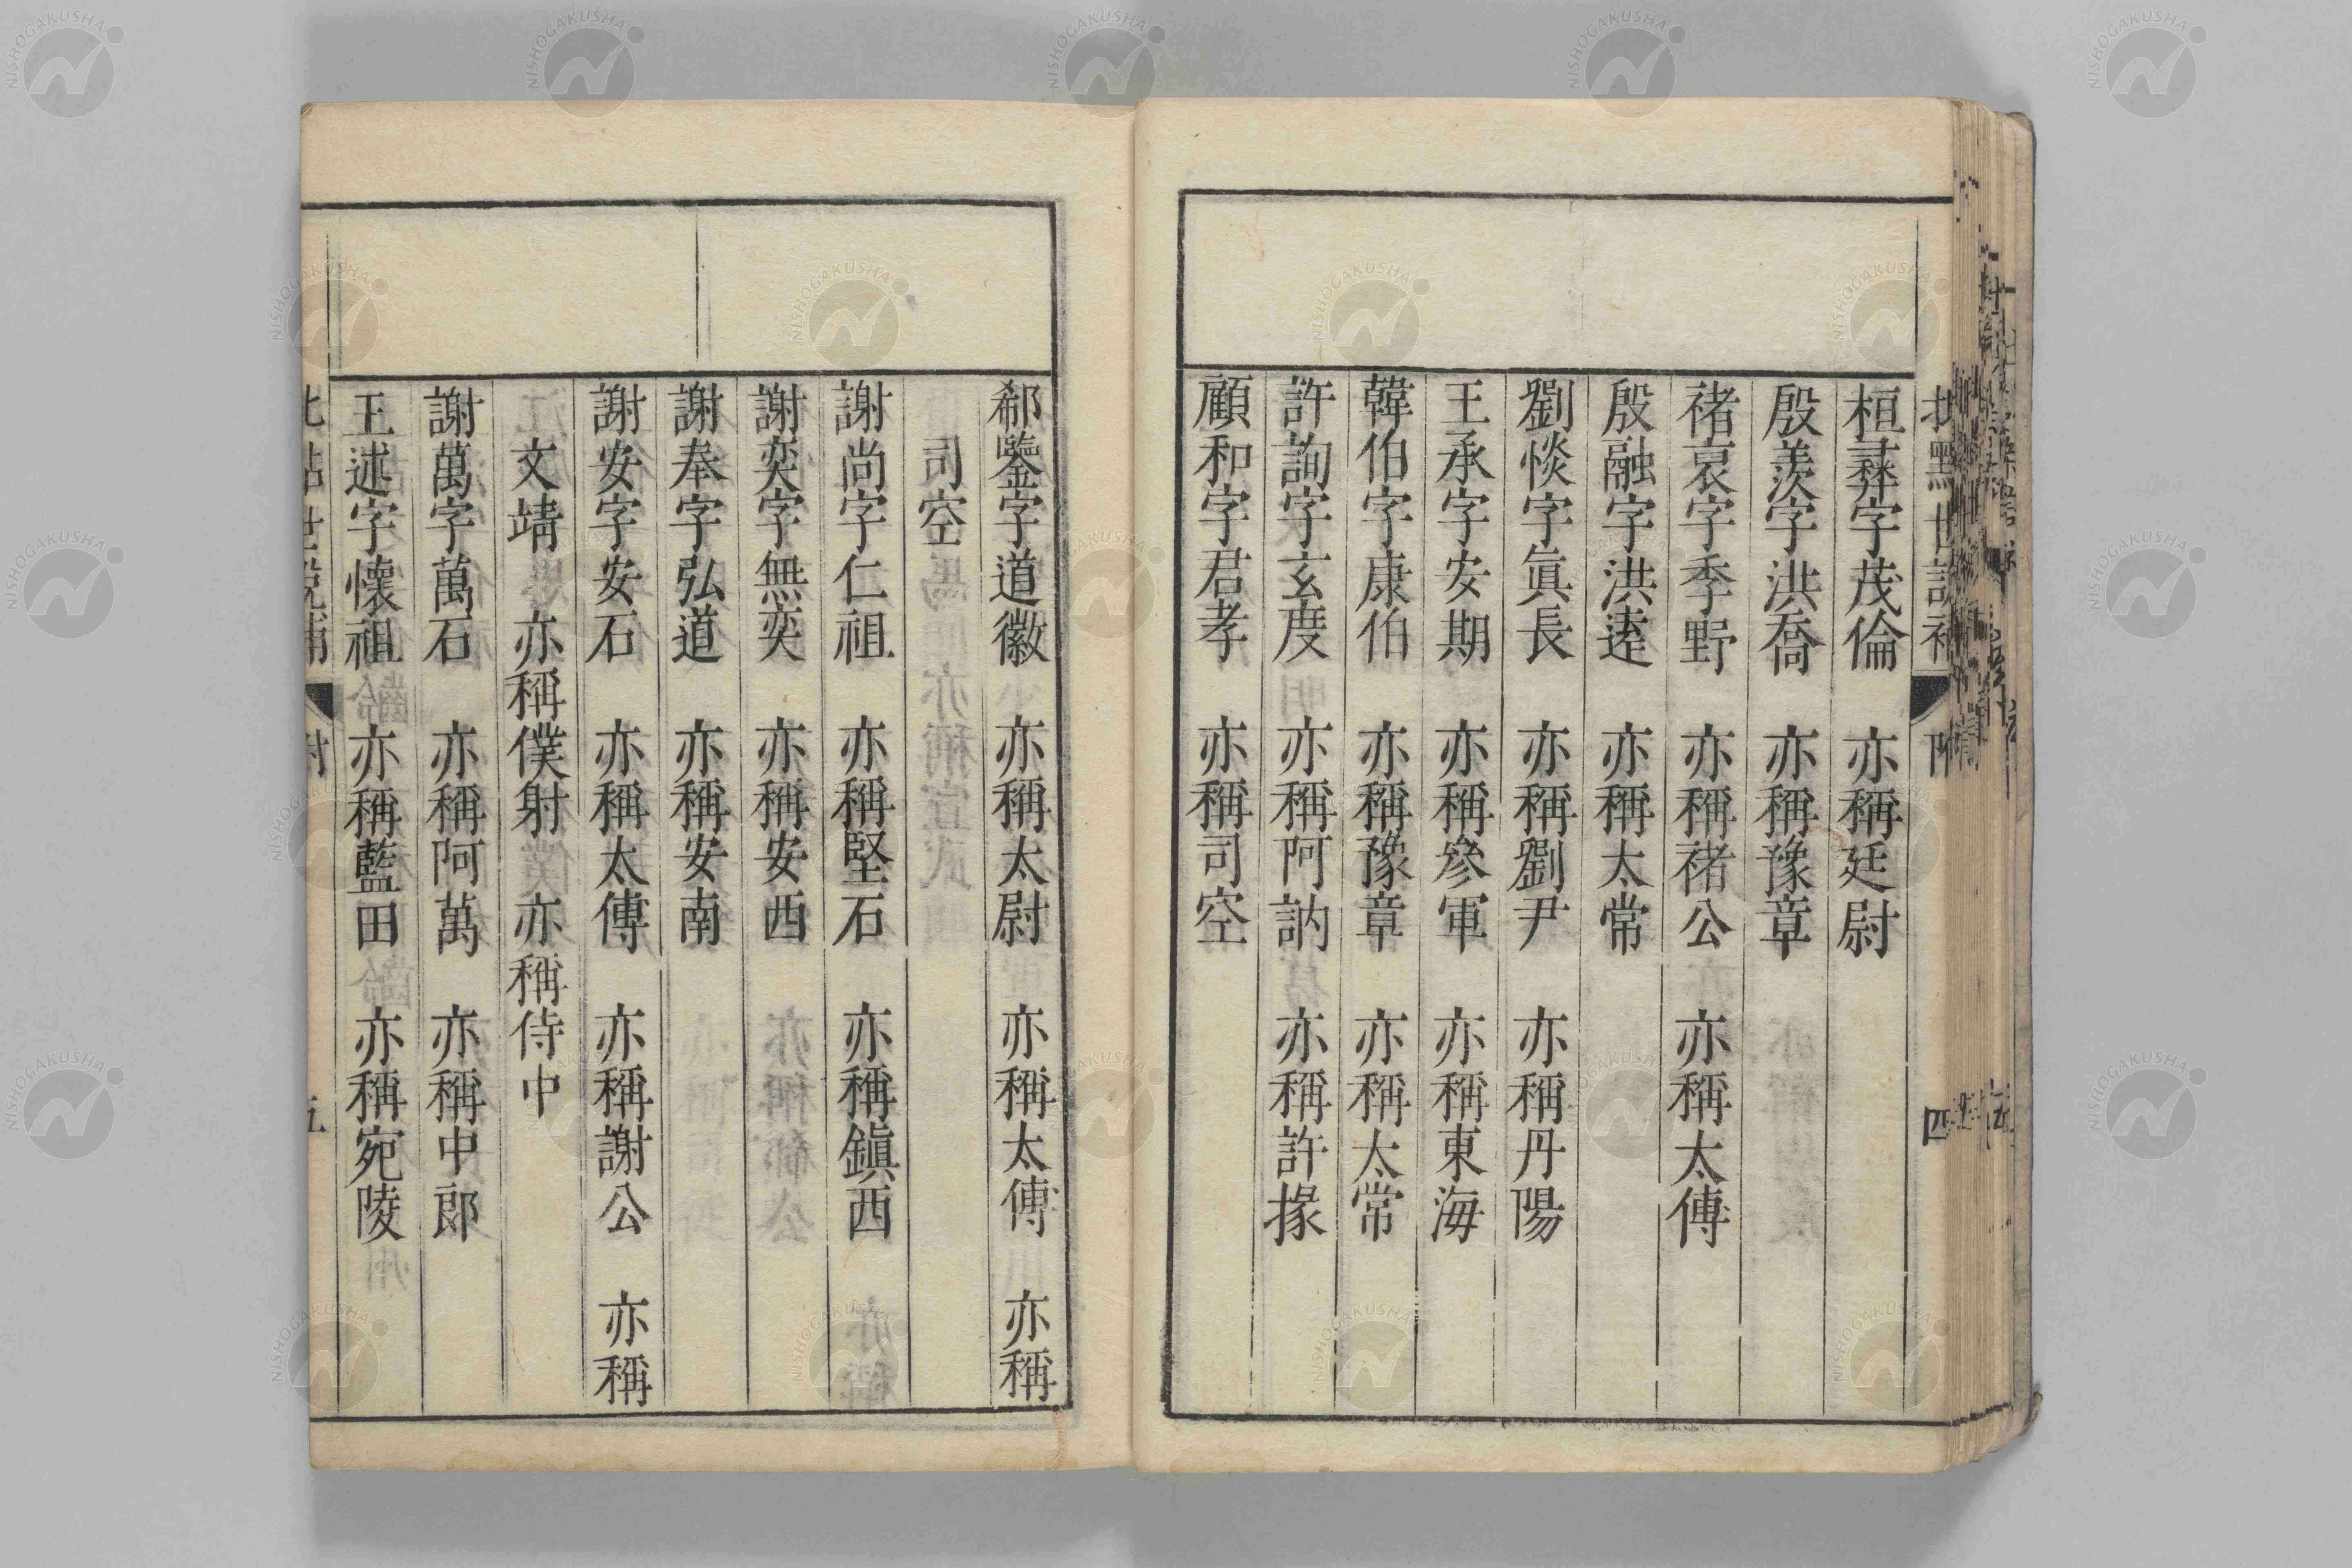 桓彛字茂倫　亦稱廷尉
殷羨字洪喬　亦稱豫章
禇裒字季野　亦稱禇公　亦稱太傅
殷融字洪遠　亦稱太常
劉惔字眞長　亦稱劉尹　亦稱丹陽
王承字安期　亦稱參軍　亦稱東海
韓伯字康伯　亦稱豫章　亦稱太常
許詢字玄度　亦稱阿訥　亦稱許掾
顧和字君孝　亦稱司空
郗鑒字道徽　亦稱太尉　亦稱太傅　亦稱
司空
謝尚字仁祖　亦稱堅石　亦稱鎭西
謝奕字無奕　亦稱安西
謝奉字弘道　亦稱安南
謝安字安石　亦稱太傅　亦稱謝公　亦稱
文靖　亦稱僕射　亦稱侍中
謝萬字萬石　亦稱阿萬　亦稱中郎
王述字懷祖　亦稱藍田　亦稱宛陵
NISHOGAKUSHA